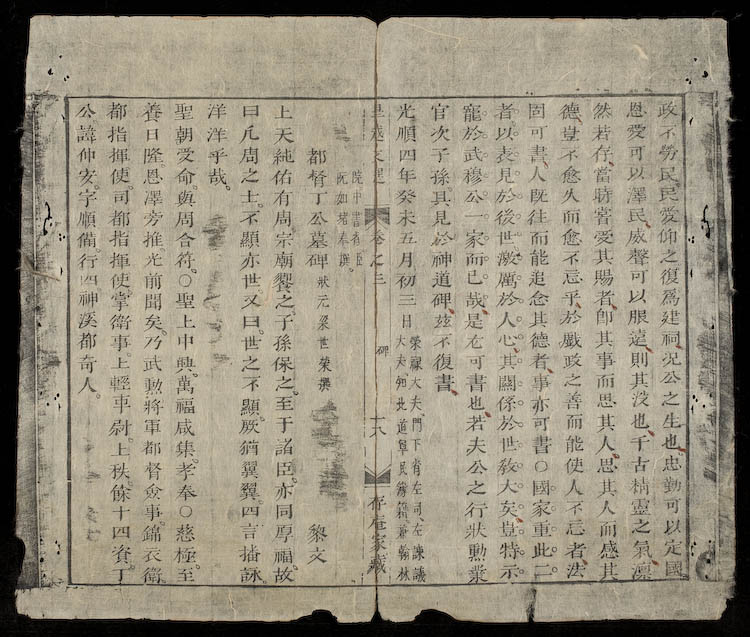 政不勞民民愛仰之復爲建祠況公之生也忠勤可以定國
恩愛可以澤民威聲可以服遠則其沒也千古精靈之氣凜
然若存當時嘗受其賜者卽其事而思其人思其人而感其
德豈不愈久而愈不忘乎於戲政之善而能使人不忘者法
固可書人既往而能追念其德者事亦可書○國家重此二
者以表見於後世激厲於人心其關係於世敎大矣豈特示
寵於武穆公一家而已哉是尤可書也若夫公之行狀勲業
官次子孫其見於神道碑茲不復書
光順四年癸未五月初三日
榮祿大夫門下省左司左諫議
大夫知北道軍民簿籍兼翰林
院中書省臣
阮如堵奉撰
皇越文選
卷之三
碑
十八
存庵家藏
都督丁公墓碑
狀元梁世榮撰
黎文
上天純佑有周宗廟饗之子孫保之至于諸臣亦同厚福故
曰凡周之士不顯亦世又曰世之不顯厥猶翼翼四言播詠
洋洋乎哉
聖朝受命與周合符○聖上中興萬福咸集孝奉○慈極至
養日隆恩澤旁推光前聞矣乃武勲將軍都督僉事錦衣衛
都指揮使司都指揮使掌衛事上輕車尉上秩餘十四資丁
公諱仲
字順備行四神溪都奇人